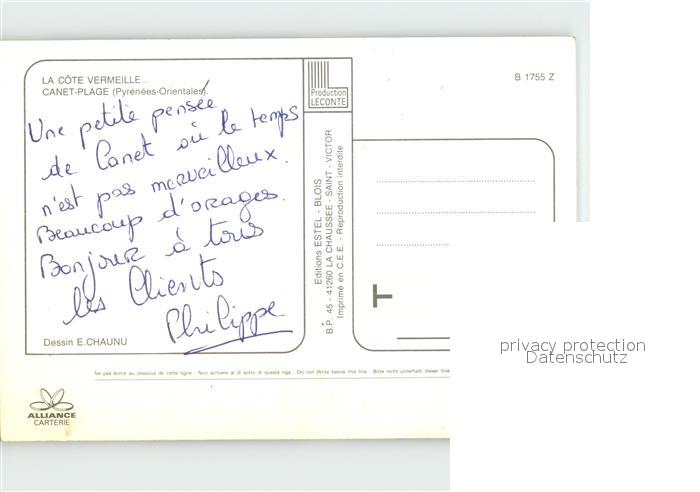 LA CÔTE VERMEILLE...
CANET-PLAGE (Pyrénées-Orientales).
Une petite pensée
de Canet où le temps
n'est pas merveilleux.
Beaucoup d'orages.
Bonjour à tous
les Clients
Philippe
Dessin E.CHAUNU
Production
LECONTE
B 1755 Z
Editions ESTEL - BLOIS
B.P. 45 - 41260 LA CHAUSSEE - SAINT - VICTOR
Imprimé en C.E.E. - Reproduction interdite
T
privacy protection
Datenschutz
Ne pas écrire au dessous de cette ligne - Non scrivere al di sotto di questa riga - Do not Write below this line - Bitte nicht unterhalb dieser linie
ALLIANCE
CARTERIE